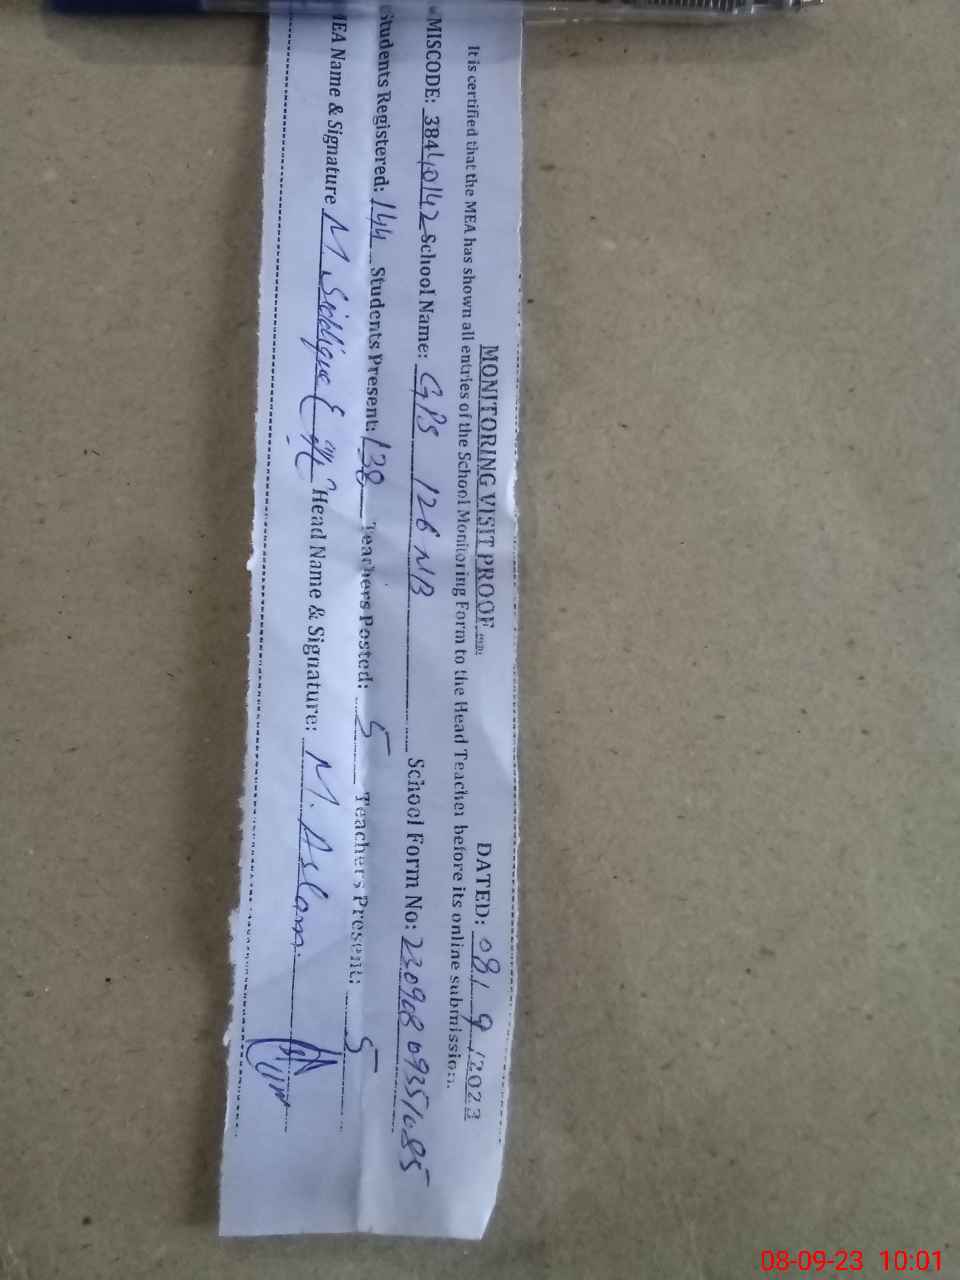 MONITORING VISIT PROOF DATED: 08/ 9 /2023
It is certified that the MEA has shown all entries of the School Monitoring Form to the Head Teacher before its online submission.
MISCODE: 38440142 School Name: GPS 126 NB School Form No:
Students Registered: 144 Students Present: 138 Teachers Posted: 5 Teachers Present: 5
MEA Name & Signature M Siddique Head Name & Signature: M. Aslam.
08-09-23 10:01